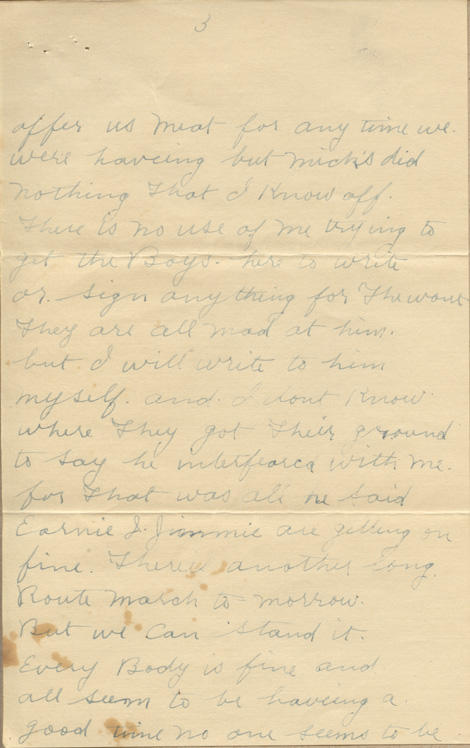 3
offer us meat for any time we.
were haveing but Micks did
nothing that I Know off.
There is no use of me trying to
get the Boys. here to write
or. sign any thing for They wont
They are all mad at him.
but I will write to him
myself. and. I dont Know
where They got Their ground
to say he interfeared with me.
for that was all he said
Earnie & Jimmie are getting on
fine. Theres another Long.
Route March to morrow.
But we Can stand it.
Every Body is fine and
all seem to be haveing a
good time no one seems to be